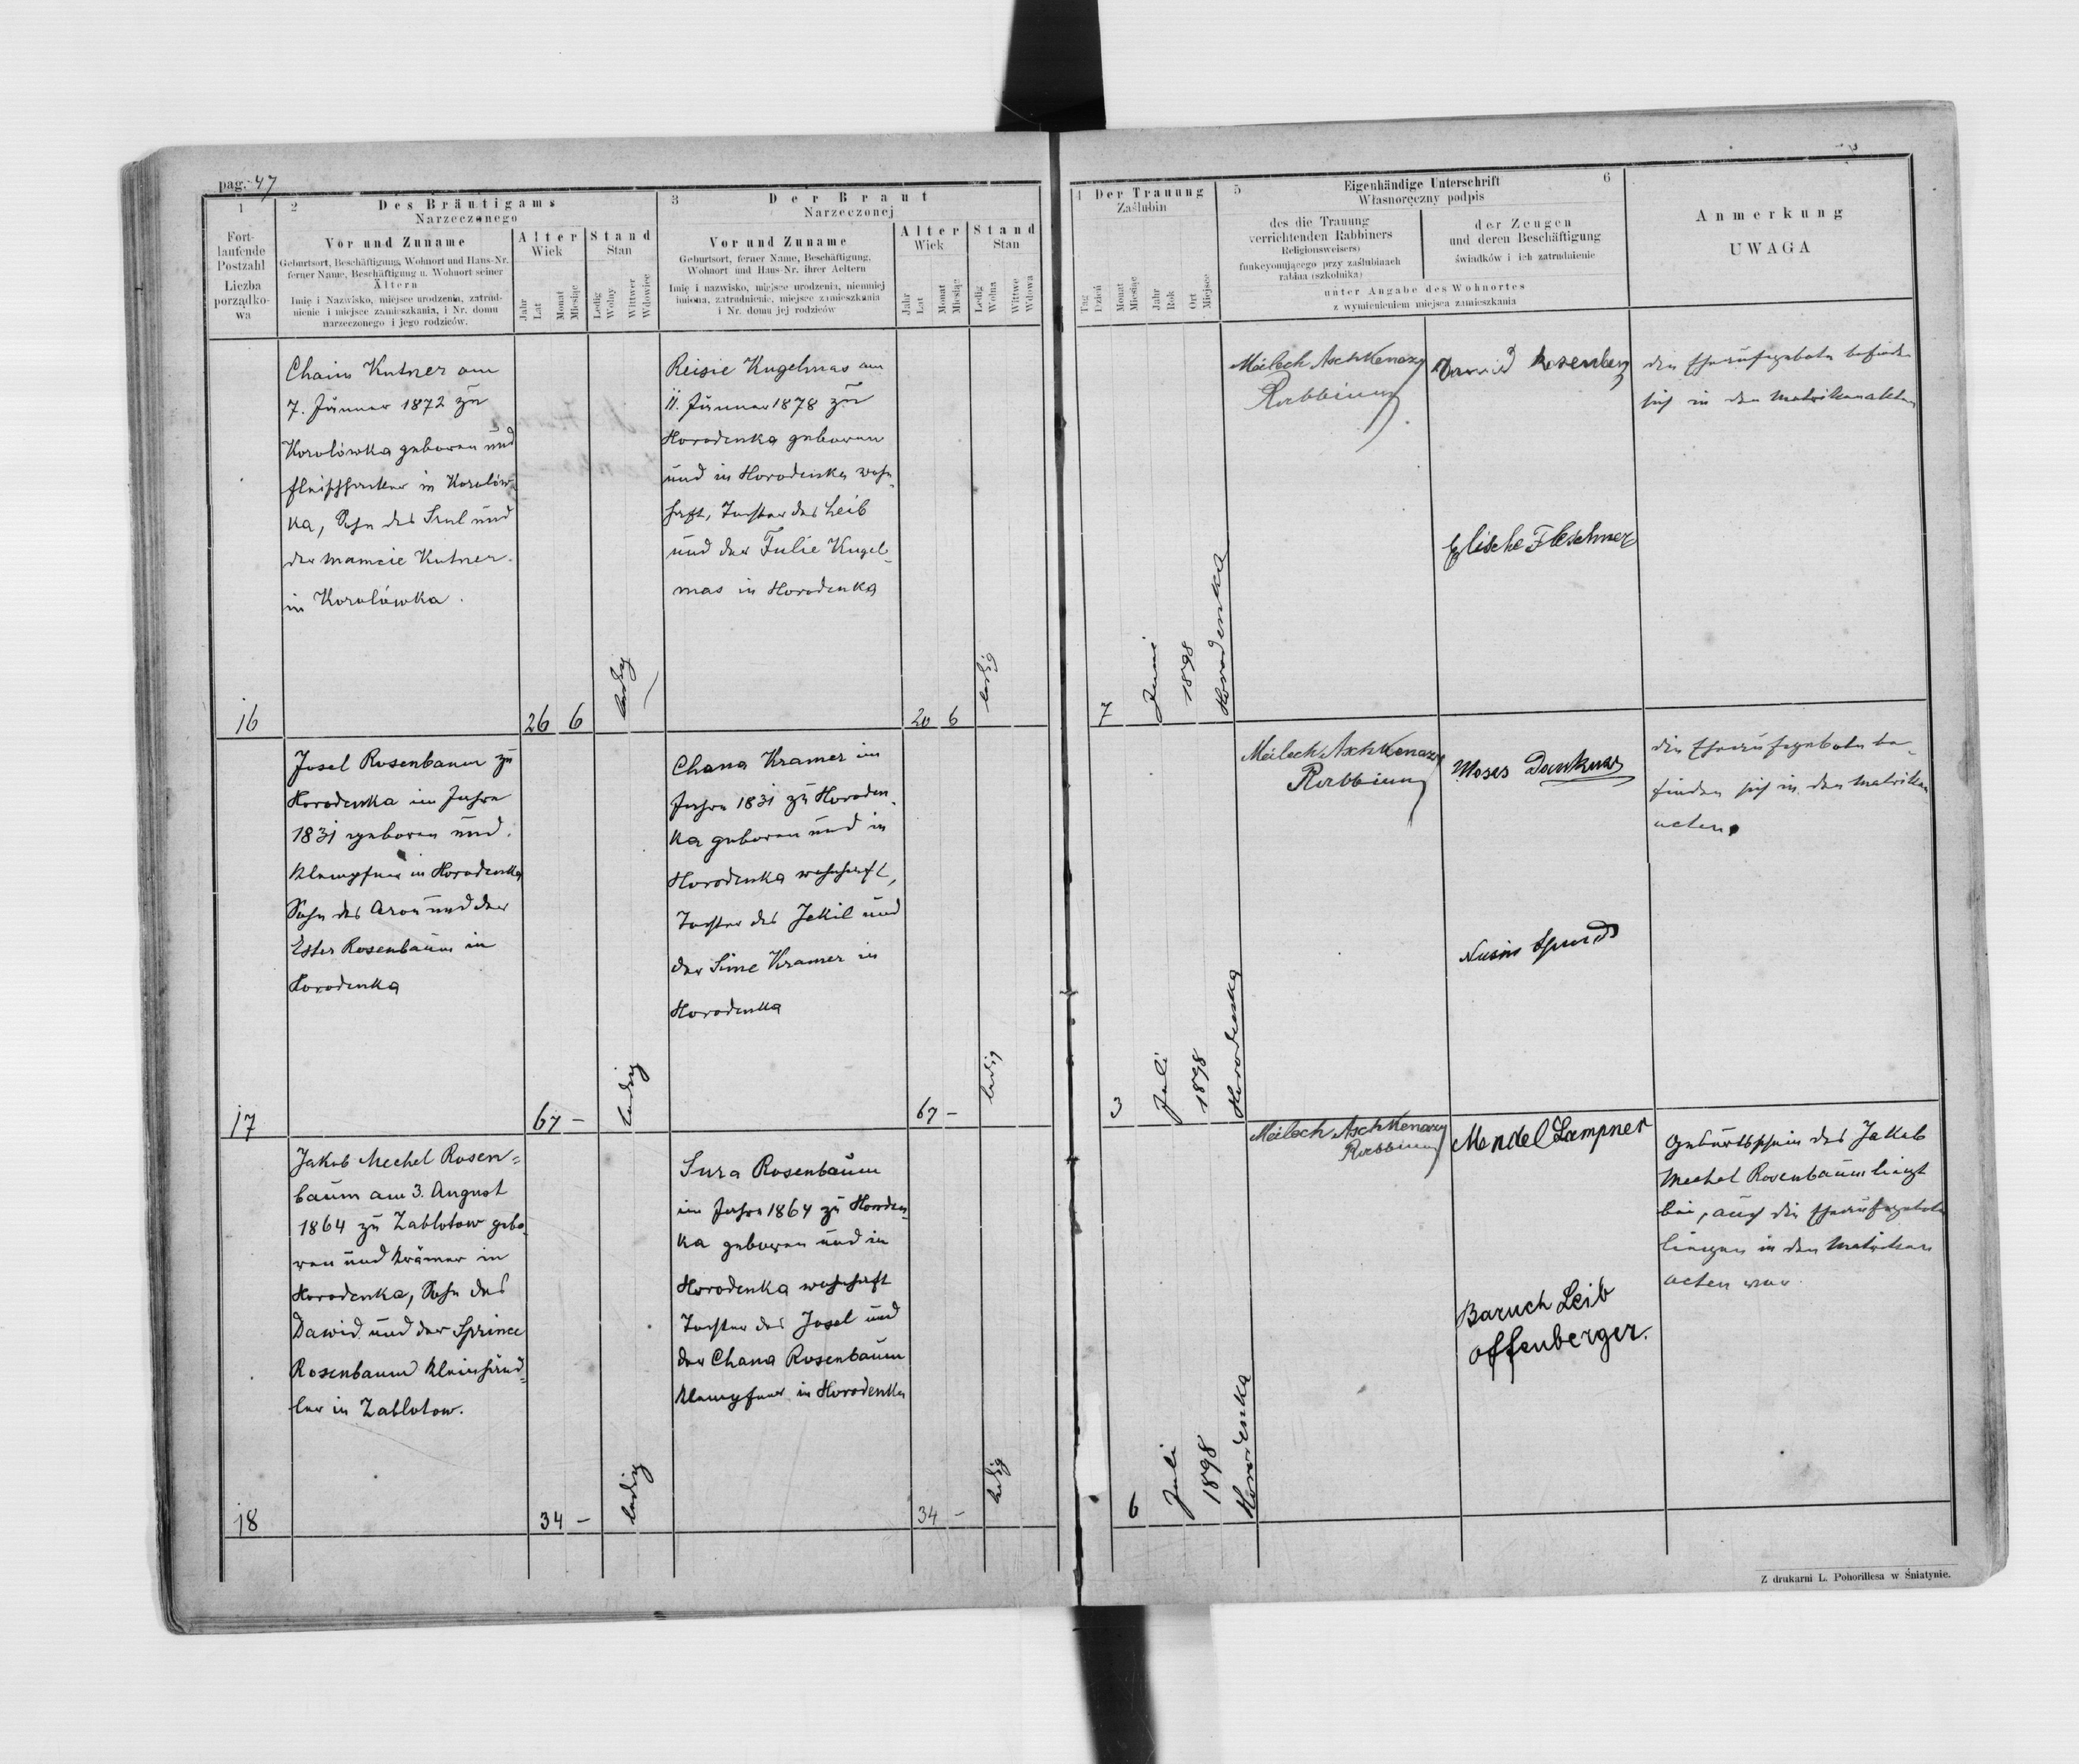 pag. 47
1
Fort-
laufende
Postzahl
Liczba
porządko-
wa
2
Des Bräutigams
Narzeczonego
Vor und Zuname
Geburtsort, Beschäftigung, Wohnort und Haus-Nr.
ferner Name, Beschäftigung u. Wohnort seiner
Ältern
Imię i Nazwisko, miejsce urodzenia, zatrud-
nienie i miejsce zamieszkania, i Nr. domu
narzeczonego i jego rodziców.
Alter
Wiek
Jahr
Lat
Monat
Miesiąc
Stand
Stan
Ledig
Wolny
Wittwer
Wdowiec
3
Der Braut
Narzeczonej
Vor und Zuname
Geburtsort, ferner Name, Beschäftigung,
Wohnort und Haus-Nr. ihrer Aeltern
Imię i nazwisko, miejsce urodzenia, niemniej
imiona, zatrudnienie, miejsce zamieszkania
i Nr. domu jej rodziców
Alter
Wiek
Jahr
Lat
Monat
Miesiąc
Stand
Stan
Ledig
Wolna
Wittwe
Wdowa
4
Der Trauung
Zaślubin
Tag
Dzień
Monat
Miesiąc
Jahr
Rok
Ort
Miejsce
5
Eigenhändige Unterschrift
Własnoręczny podpis
6
des die Trauung
verrichtenden Rabbiners
Religionsweisers)
funkcyonującego przy zaślubinach
rabina (szkolnika)
der Zeugen
und deren Beschäftigung
świadków i ich zatrudnienie
unter Angabe des Wohnortes
z wymienieniem miejsca zamieszkania
Anmerkung
UWAGA
16
Chaim Kutner am
7. Jänner 1872 zu
Korolówka geboren und
Fleischhacker in Korolów-
ka, Sohn des Srul und
der Mamcie Kutner
in Korolówka.
26 6
ledig
Reisie Kugelmas am
11. Jänner 1878 zu
Horodenka geboren
und in Horodenka wohn-
haft, Tochter des Leib
und der Julie Kugel-
mas in Horodenka
20 6
ledig
7
Juni
1898
Horodenka
Meilech Aschkenazy
Rabbiner
Dawid Rosenberg
Elische Fleschner
die Eheaufgebote befinden
sich in den Matrikenakten
17
Josel Rosenbaum zu
Horodenka im Jahre
1831 geboren und
Klempfner in Horodenka
Sohn des Aron und der
Ester Rosenbaum in
Horodenka
67 -
ledig
Chana Kramer im
Jahre 1831 zu Horoden-
ka geboren und in
Horodenka wohnhaft,
Tochter des Jekil und
der Sime Kramer in
Horodenka
67 -
ledig
3
Juli
1898
Horodenka
Meilech Aschkenazy
Rabbiner
Moses Dankner
Nusin
die Eheaufgebote be-
finden sich in den Matriken
acten
18
Jakob Mechel Rosen=
baum am 3. August
1864 zu Zablotow gebo-
ren und Krämer in
Horodenka, Sohn des
Dawid und der Sprince
Rosenbaum Kleinhänd=
ler in Zablotow.
34 -
ledig
Sura Rosenbaum
im Jahre 1864 zu Horoden-
ka geboren und in
Horodenka wohnhaft
Tochter des Josel und
der Chana Rosenbaum
Klempfner in Horodenka
34 -
ledig
6
Juli
1898
Horodenka
Meilech Aschkenazy
Rabbiner
Mendel Lampner
Baruch Leib
Offenberger.
Geburtsschein des Jakob
Mechel Rosenbaum liegt
bei, auch die Eheaufgebote
liegen in den Matriken
acten vor.
Z drukarni L. Pohorillesa w Śniatynie.